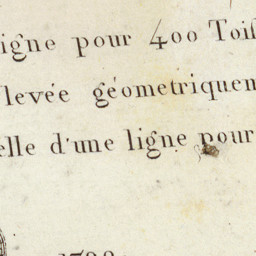 igne pour 400 Tois
levée géometriquem
elle d'une ligne pour